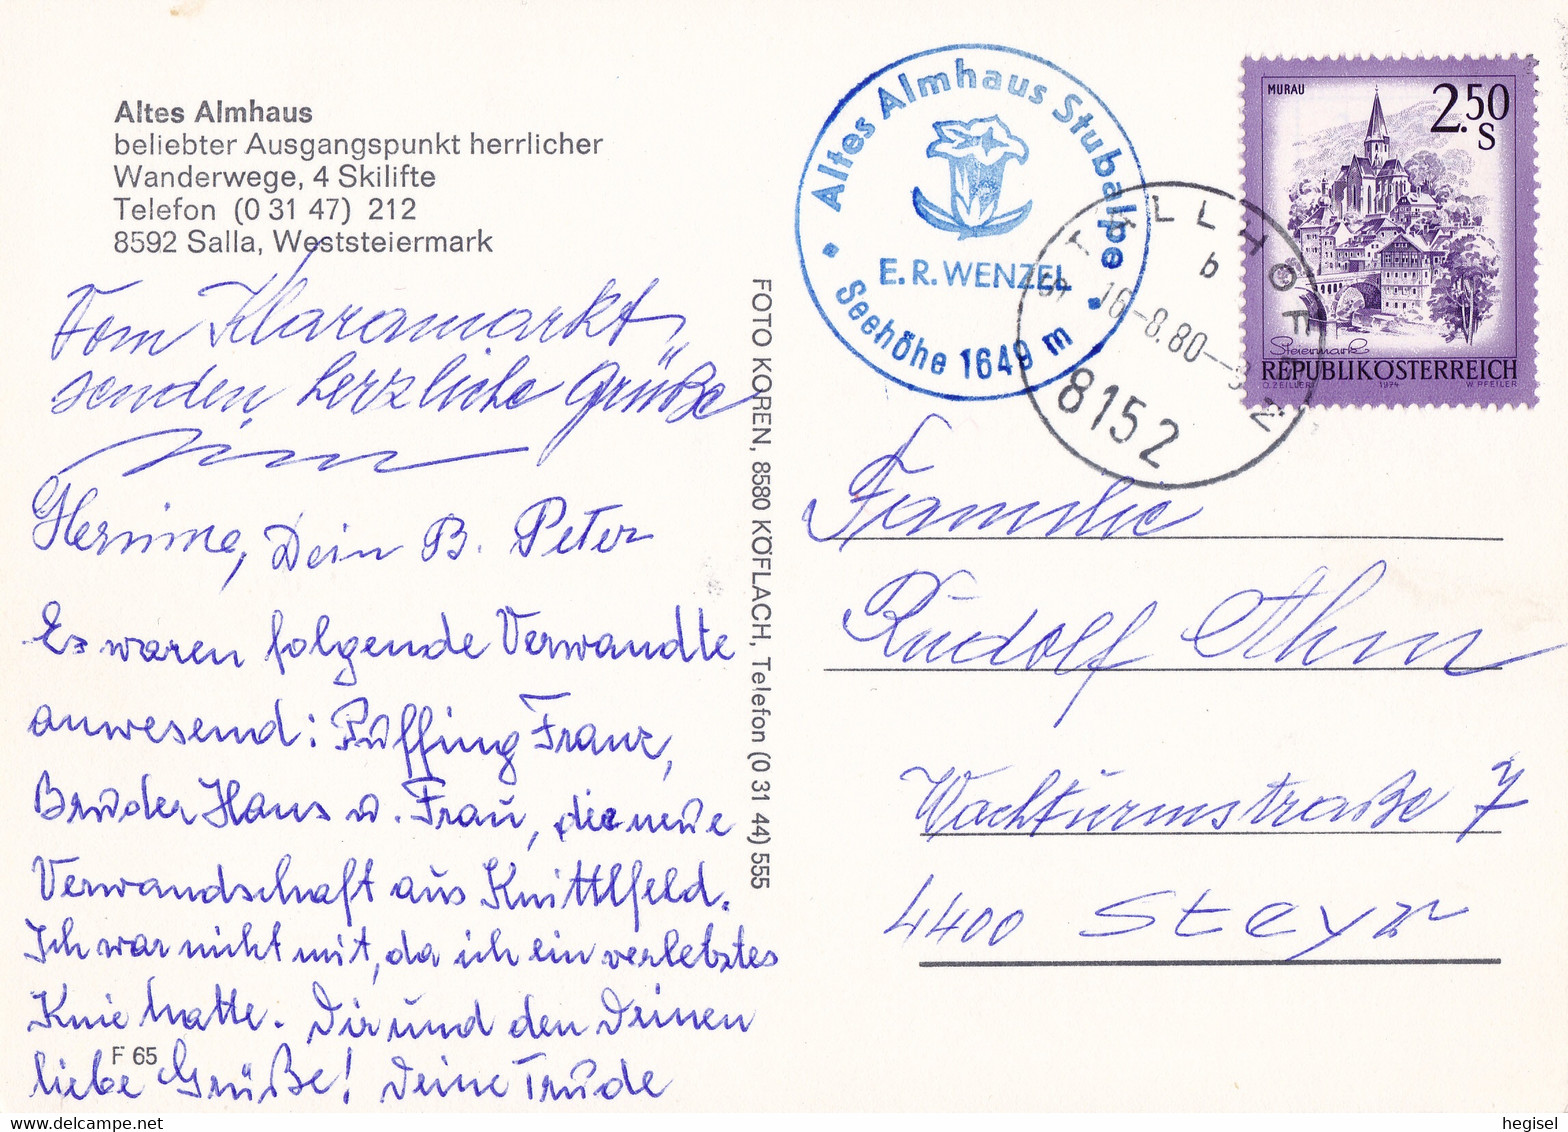 Altes Almhaus
beliebter Ausgangspunkt herrlicher
Wanderwege, 4 Skilifte
Telefon (0 31 47) 212
8592 Salla, Weststeiermark
Vom Klaramarkt
senden herzliche Grüße
Hermine, Dein B. Peter
Es waren folgende Verwandte
anwesend: Puffing Franz,
Bruder Hans u. Frau, die neue
Verwandschaft aus Knittlfeld.
Ich war nicht mit, da ich ein verletztes
Knie hatte. Dir und den Deinen
liebe Grüße! Deine Trude
F 65
FOTO KOREN, 8580 KÖFLACH, Telefon (0 31 44) 555
Altes Almhaus Stubalpe
E. R. WENZEL
Seehöhe 1649 m
STALLHOFEN
b
16.-8.80-
8152
MURAU
2.50
S
Steiermark
REPUBLIK ÖSTERREICH
O. ZEILLER 1974 W. PFEILER
Familie
Rudolf Ahm
Wachturmstraße 7
4400 Steyr
hegisel